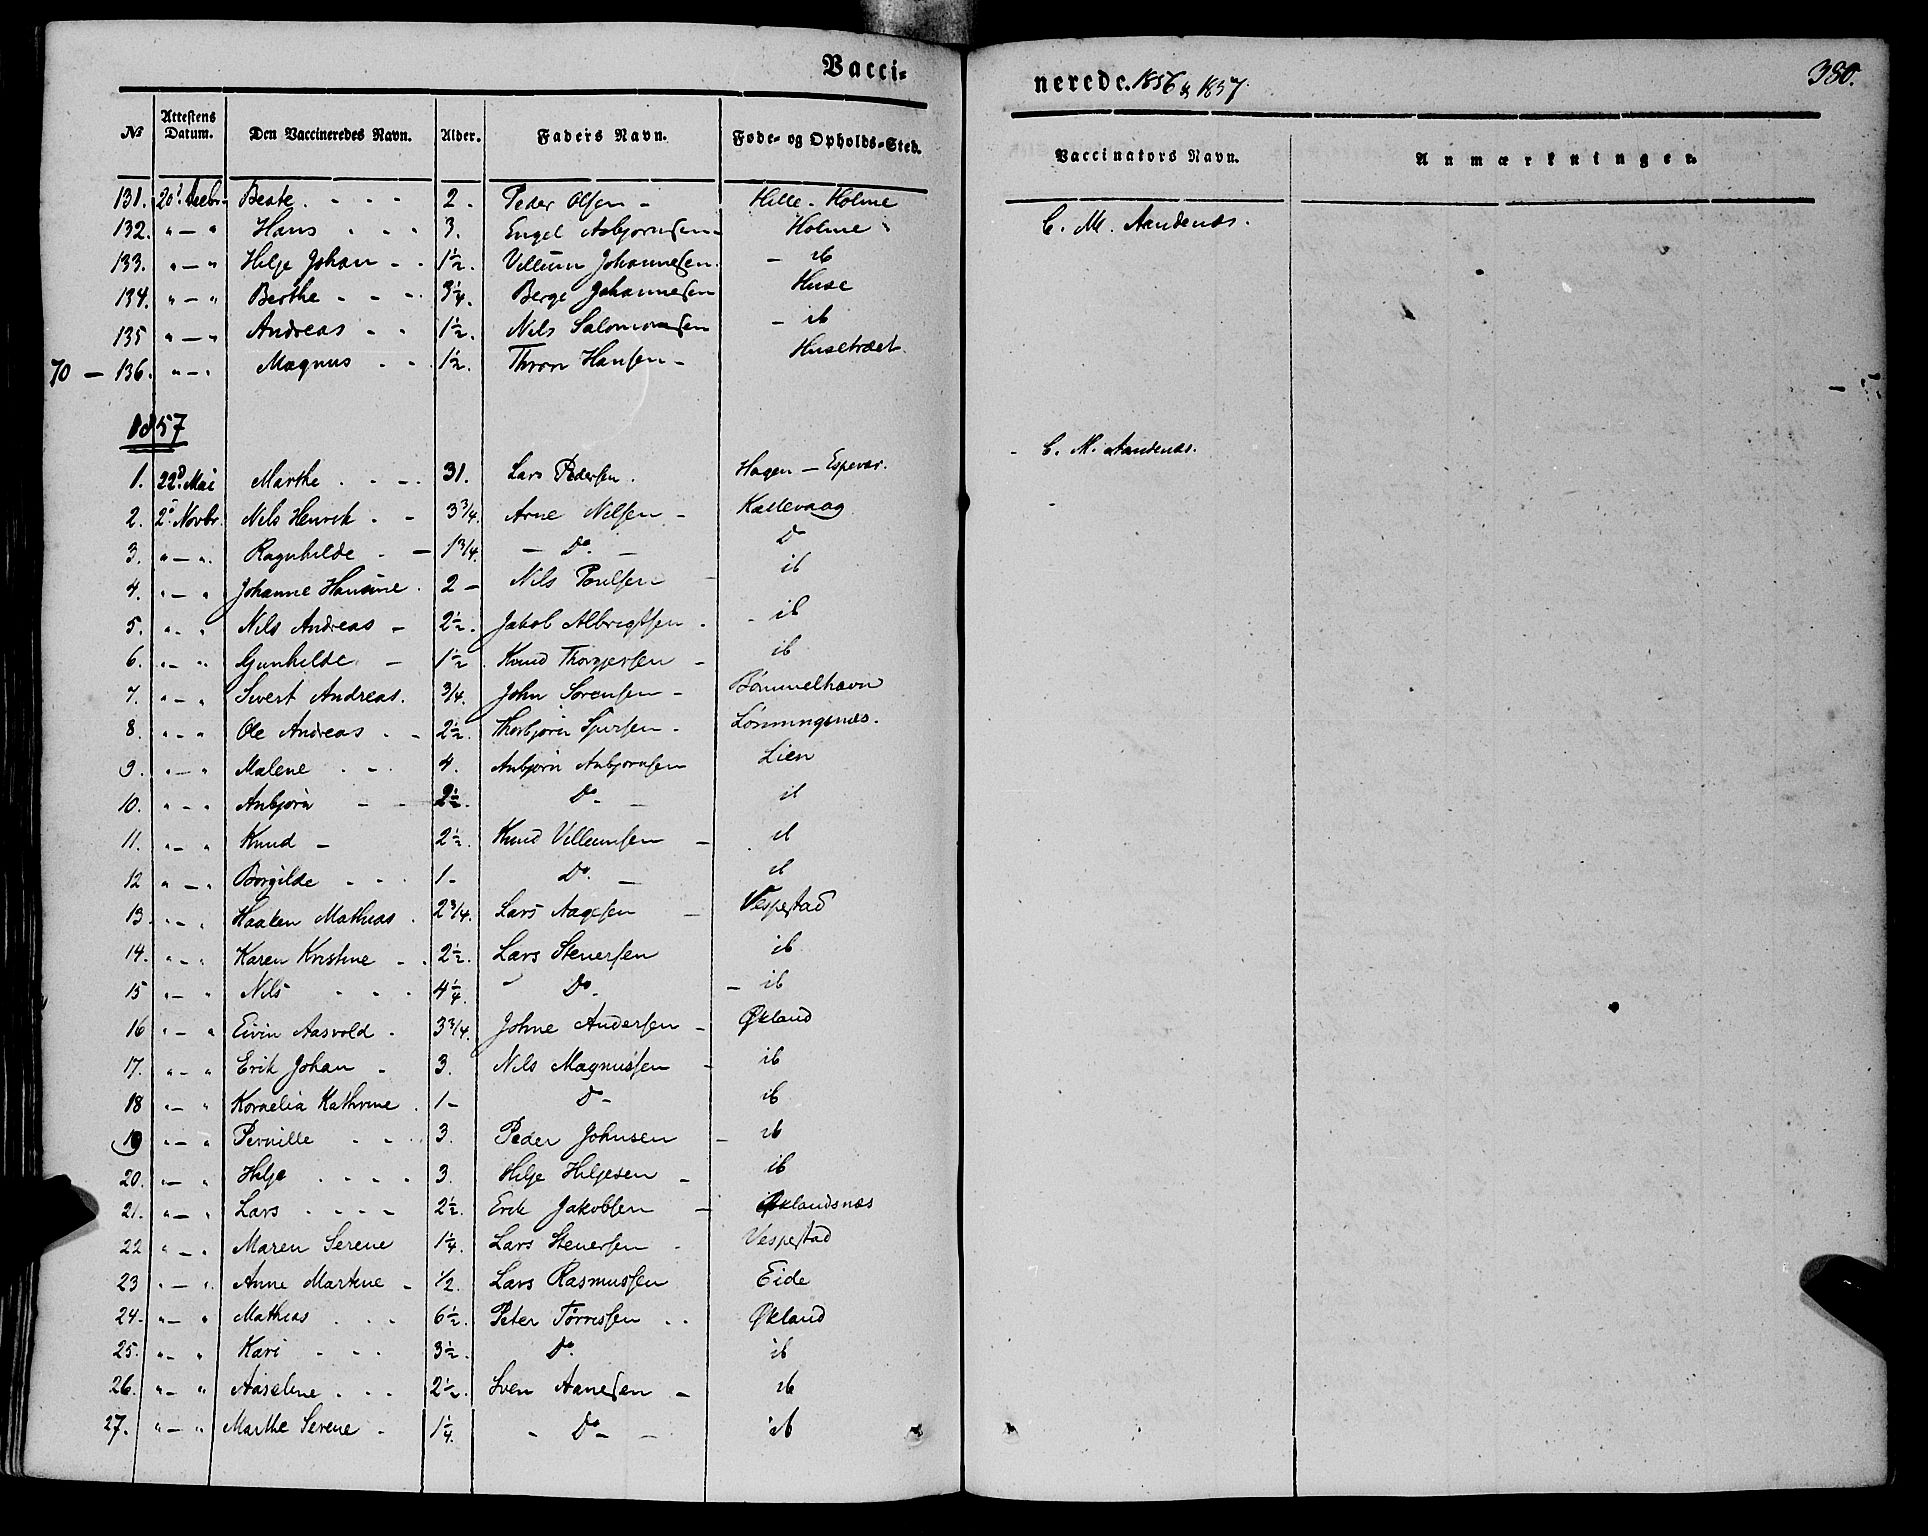 Vacci-
nerede. 1856 & 1857.
380.
No Attestens Datum. Den Vaccineredes Navn. Alder. Faders Navn. Føde- og Opholds-Sted. Vaccinators Navn. Anmærkninger.
131. 20d Decbr. Beate 2. Peder Olsen - Hille - Holme
132. " - " Hans 3. Engel Asbjørnsen - Holme C. M. Aandenæs.
133. " - " Helje Johan 1½. Villum Johannesen - ib
134. " - " Berthe 3¼. Berge Johannesen Huse
135 " - " Andreas 1½. Nils Salomonsen - ib
70 - 136. " - " Magnus 1½. Thron Hansen - Husetræet.
1857
1. 22d Mai Marthe 31. Lars Pedersen. Hagen - Espevær. C. M. Aandenæs.
2. 2d Novbr. Nils Henrik - 3¾. Arne Nilsen - Kallevaag
3. " - " Ragnhilde - 1¾. - Do. - Do
4. " - " Johanne Hansine. 2 - Nils Poulsen ib
5. " - " Nils Andreas - 2½. Jakob Albrigtsen. - ib
6. " - " Gunhilde - 1½. Knud Thorgjersen - ib
7. " - " Sivert Andreas. ¾. John Sørensen - Bømmelhavn
8. " - " Ole Andreas - 2½. Thorbjørn Sjursen - Lønningsnæs.
9. " - " Malene 4. Anbjørn Anbjørnsen Lien
10. " - " Anbjørn - 2½. Do - ib
11. " - " Knud - 2½. Knud Villumsen - ib
12 " - " Borgilde 1 - Do. - ib
13. " - " Haaken Mathias. 2¾. Lars Aagesen - Vespestad
14. " - " Karen Kristine 2½. Lars Stenersen ib
15 " - " Nils 4¼. - Do - - ib
16 " - " Eivin Aasvold. 3¾. Johne Andersen - Økland
17. " - " Erik Johan - 3. Nils Magnussen - ib
18 " - " Kornelia Kathrine. 1 - Do - ib
19 " - " Pernille 3. Peder Johnsen - ib
20. " - " Helje 3. Helje Heljesen - ib
21. " - " Lars 2½. Erik Jakobsen - Øklandsnæs
22 " - " Maren Serene 1¼. Lars Stenersen - Vespestad
23 " - " Anne Martine - ½. Lars Rasmussen Eide
24. " - " Mathias 6½. Peter Tørressen Økland
25. " - " Kari 3½. Do. ib
26. " - " Aaselene 2½. Sven Aanesen - ib
27. " - " Marthe Serene - 1¼. - Do - ib